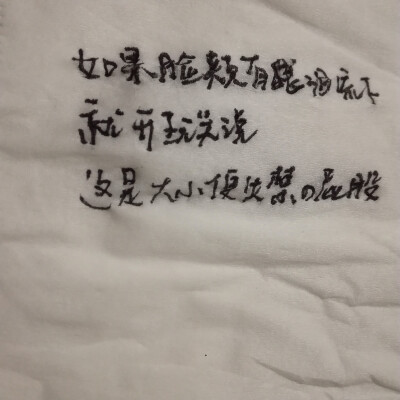 如果脸颊有眼泪流下
就开玩笑说
这是大小便失禁の屁股